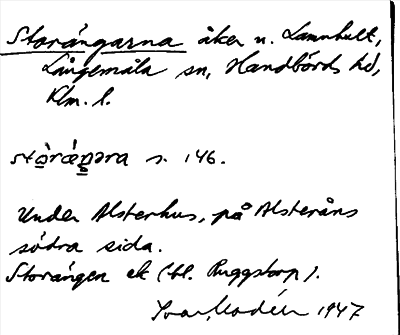 Storängarna åker u. Lamnhult,
Långemåla sn, Handbörds hd,
Klm. l.
s. 146.
Under Alsterhus, på Alsteråns
södra sida.
Storängen ek (bl. Ruggstorp).
Ivar Modéer 1947